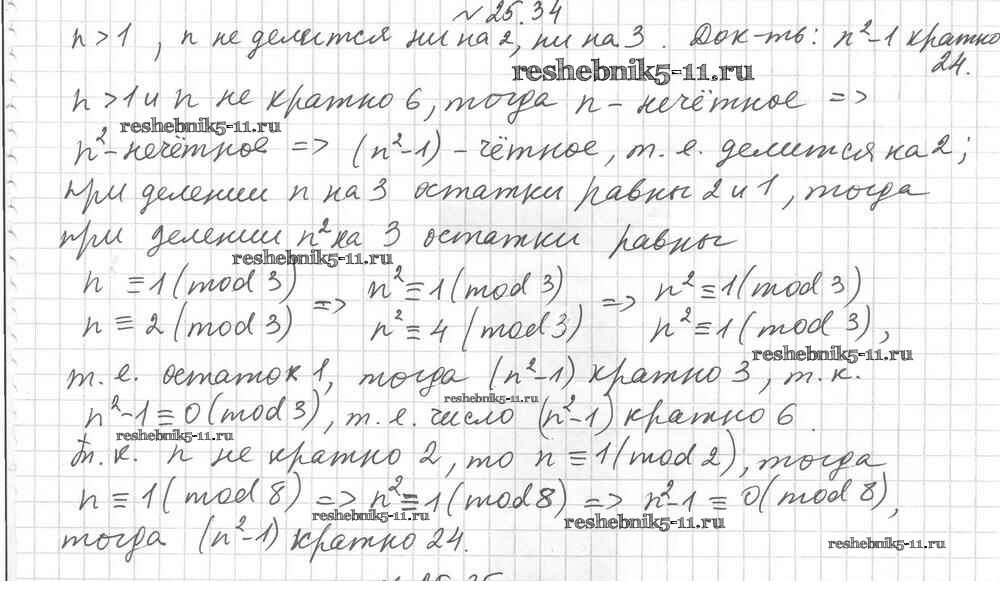 №25.34
n>1, n не делится ни на 2, ни на 3. Док-ть: n²-1 кратно
24.
reshebnik5-11.ru
n>1 и n не кратно 6, тогда n - нечётное =>
reshebnik5-11.ru
n²-нечётное => (n²-1) - чётное, т. е. делится на 2;
при делении n на 3 остатки равны 2 и 1, тогда
при делении n² на 3 остатки равны
reshebnik5-11.ru
n ≡ 1 (mod 3) => n² ≡ 1 (mod 3) => n² ≡ 1 (mod 3)
n ≡ 2 (mod 3) n² ≡ 4 (mod 3) n² ≡ 1 (mod 3),
reshebnik5-11.ru
т. е. остаток 1, тогда (n²-1) кратно 3, т. к.
reshebnik5-11.ru
n²-1 ≡ 0 (mod 3), т. е. число (n²-1) кратно 6.
reshebnik5-11.ru
Т. к. n не кратно 2, то n ≡ 1 (mod 2), тогда
n ≡ 1 (mod 8) => n² ≡ 1 (mod 8) => n²-1 ≡ 0 (mod 8),
reshebnik5-11.ru
reshebnik5-11.ru
тогда (n²-1) кратно 24.
reshebnik5-11.ru